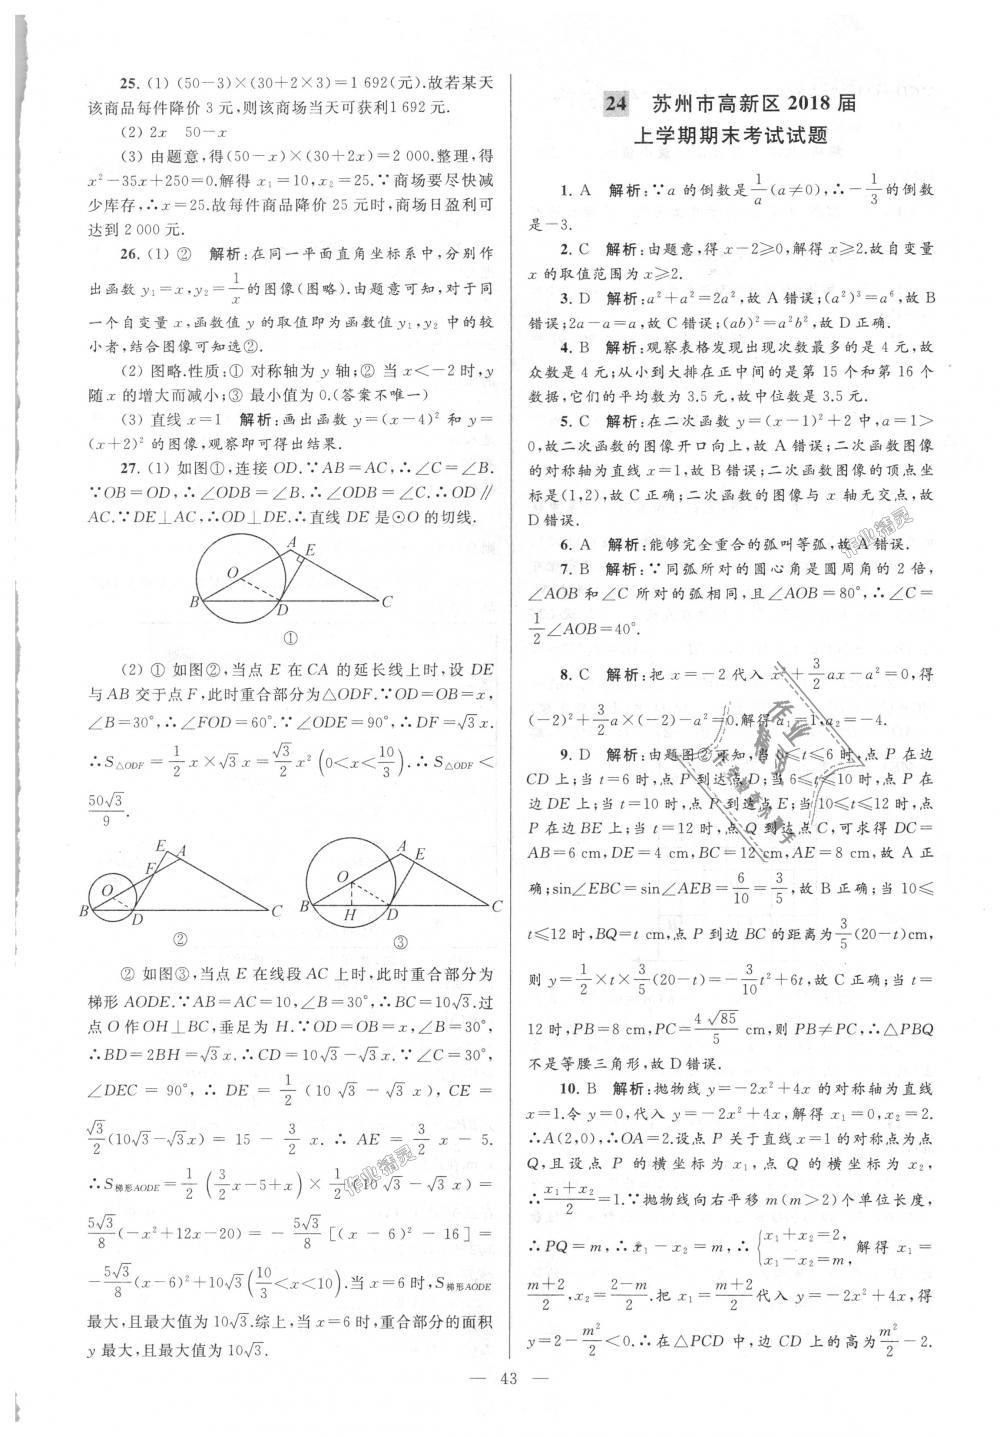 25. (1) (50-3)×(30+2×3)=1 692(元).故若某天
该商品每件降价 3 元,则该商场当天可获利1 692 元.
(2) 2x　50-x
(3) 由题意,得(50-x)×(30+2x)=2 000.整理,得
x²-35x+250=0.解得 x₁=10,x₂=25.∵商场要尽快减
少库存,∴x=25.故每件商品降价 25 元时,商场日盈利可
达到 2 000 元.
26. (1) ②　解析:在同一平面直角坐标系中,分别作
出函数 y₁=x,y₂=1/x的图像(图略).由题意可知,对于同
一个自变量 x,函数值 y 的取值即为函数值 y₁,y₂ 中的较
小者,结合图像可知选②.
(2) 图略.性质:① 对称轴为 y 轴;② 当 x<-2 时,y
随 x 的增大而减小;③ 最小值为 0.(答案不唯一)
(3) 直线 x=1　解析:画出函数 y=(x-4)² 和 y=
(x+2)² 的图像,观察即可得出结果.
27. (1) 如图①,连接 OD.∵AB=AC,∴∠C=∠B.
∵OB=OD,∴∠ODB=∠B.∴∠ODB=∠C.∴OD∥
AC.∵DE⊥AC,∴OD⊥DE.∴直线 DE 是⊙O 的切线.
A E O B D C
①
(2) ① 如图②,当点 E 在 CA 的延长线上时,设 DE
与 AB 交于点 F,此时重合部分为△ODF.∵OD=OB=x,
∠B=30°,∴∠FOD=60°.∵∠ODE=90°,∴DF=√3x.
∴S△ODF=1/2 x×√3x=√3/2 x²(0<x<10/3).∴S△ODF<
50√3/9.
E A F O B D C
②
A E O B H D C
③
② 如图③,当点 E 在线段 AC 上时,此时重合部分为
梯形 AODE.∵AB=AC=10,∠B=30°,∴BC=10√3.过
点 O 作 OH⊥BC,垂足为 H.∵OD=OB=x,∠B=30°,
∴BD=2BH=√3x.∴CD=10√3-√3x.∵∠C=30°,
∠DEC=90°,∴DE=1/2(10√3-√3x),CE=
√3/2(10√3-√3x)=15-3/2 x.∴AE=3/2 x-5.
∴S梯形AODE=1/2(3/2 x-5+x)×1/2(10√3-√3x)=
5√3/8(-x²+12x-20)=-5√3/8[(x-6)²-16]=
-5√3/8(x-6)²+10√3(10/3<x<10).当 x=6 时,S梯形AODE
最大,且最大值为 10√3.综上,当 x=6 时,重合部分的面积
y 最大,且最大值为 10√3.
24　苏州市高新区 2018 届
上学期期末考试试题
1. A　解析:∵a 的倒数是1/a(a≠0),∴-1/3的倒数
是-3.
2. C　解析:由题意,得 x-2≥0,解得 x≥2.故自变量
x 的取值范围为 x≥2.
3. D　解析:a²+a²=2a²,故 A 错误;(a²)³=a⁶,故 B
错误;2a-a=a,故 C 错误;(ab)²=a²b²,故 D 正确.
4. B　解析:观察表格发现出现次数最多的是 4 元,故
众数是 4 元;从小到大排在正中间的是第 15 个和第 16 个
数据,它们的平均数为 3.5 元,故中位数是 3.5 元.
5. C　解析:在二次函数 y=(x-1)²+2 中,a=1>
0,故二次函数的图像开口向上,故 A 错误;二次函数图像
的对称轴为直线 x=1,故 B 错误;二次函数图像的顶点坐
标是(1,2),故 C 正确;二次函数的图像与 x 轴无交点,故
D 错误.
6. A　解析:能够完全重合的弧叫等弧,故 A 错误.
7. B　解析:∵同弧所对的圆心角是圆周角的 2 倍,
∠AOB 和∠C 所对的弧相同,且∠AOB=80°,∴∠C=
1/2∠AOB=40°.
8. C　解析:把 x=-2 代入 x²+3/2 ax-a²=0,得
(-2)²+3/2 a×(-2)-a²=0.解得 a₁=1,a₂=-4.
9. D　解析:由题图②可知,当0≤t≤6 时,点 P 在边
CD 上;当 t=6 时,点 P 到达点 D;当 6≤t≤10 时,点 P 在
边 DE 上;当 t=10 时,点 P 到达点 E;当10≤t≤12 时,点
P 在边 BE 上;当 t=12 时,点 Q 到达点 C,可求得 DC=
AB=6 cm,DE=4 cm,BC=12 cm,AE=8 cm,故 A 正
确;sin∠EBC=sin∠AEB=6/10=3/5,故 B 正确;当 10≤
t≤12 时,BQ=t cm,点 P 到边 BC 的距离为3/5(20-t)cm,
则 y=1/2×t×3/5(20-t)=-3/10 t²+6t,故 C 正确;当 t=
12 时,PB=8 cm,PC=4√85/5 cm,则 PB≠PC,∴△PBQ
不是等腰三角形,故 D 错误.
10. B　解析:抛物线 y=-2x²+4x 的对称轴为直线
x=1.令 y=0,代入 y=-2x²+4x,解得 x₁=0,x₂=2.
∴A(2,0),∴OA=2.设点 P 关于直线x=1的对称点为点
Q,且设点 P 的横坐标为 x₁,点 Q 的横坐标为 x₂,
∴(x₁+x₂)/2=1.∵抛物线向右平移 m(m>2)个单位长度,
∴PQ=m,∴x₁-x₂=m,∴{x₁+x₂=2, x₁-x₂=m. 解得 x₁=
(m+2)/2,x₂=(2-m)/2.把 x₁=(m+2)/2代入 y=-2x²+4x,得
y=2-m²/2<0.∴在△PCD 中,边 CD 上的高为m²/2-2.
— 43 —
作业精灵